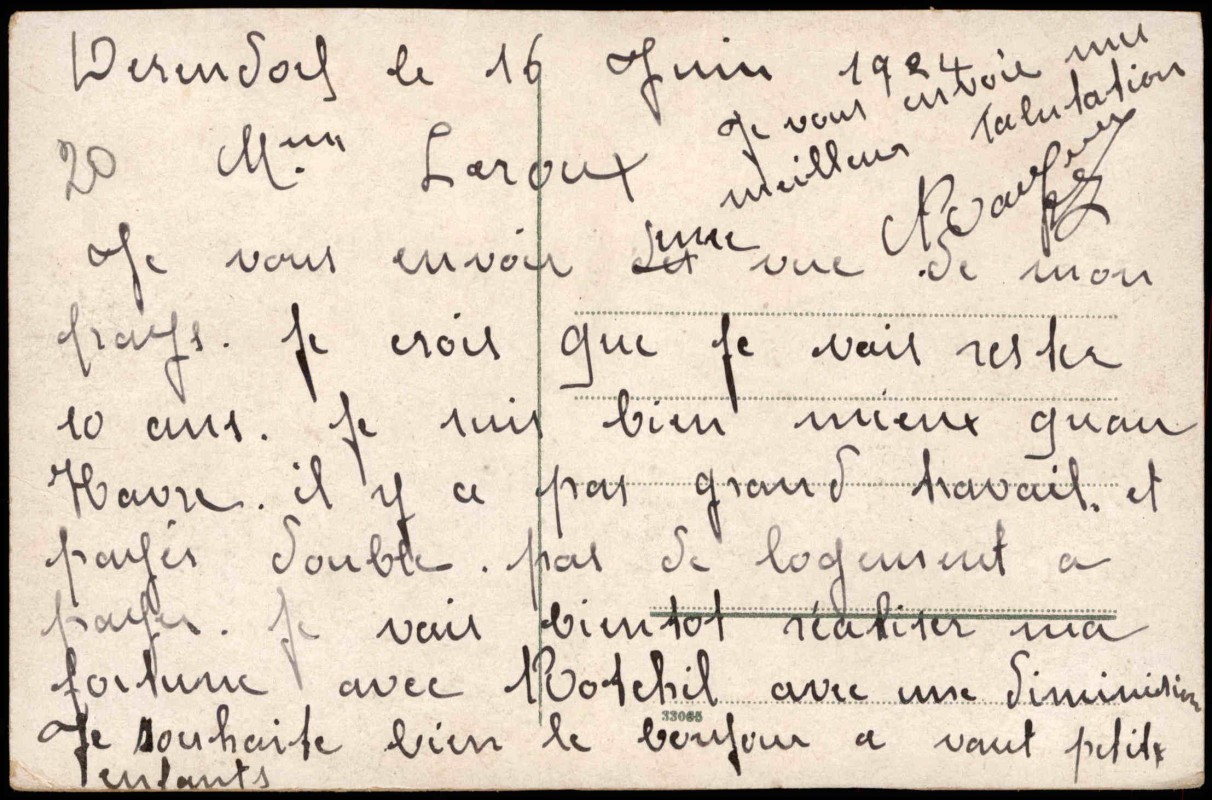 Derendorf le 16 Juin 1924
20 Mme Laroux
Je vous envoir une vue de mon
pays. Je crois que je vais rester
10 ans. Je suis bien mieux quau
Havre. il y a pas grand travail. et
payés double. pas de logement a
payer. Je vais bientot réaliser ma
fortune avec Rotchil avec une
Je souhaite bien le bonjour a vaut petite
enfants
Je vous envoie mes
meilleur salutation
33065